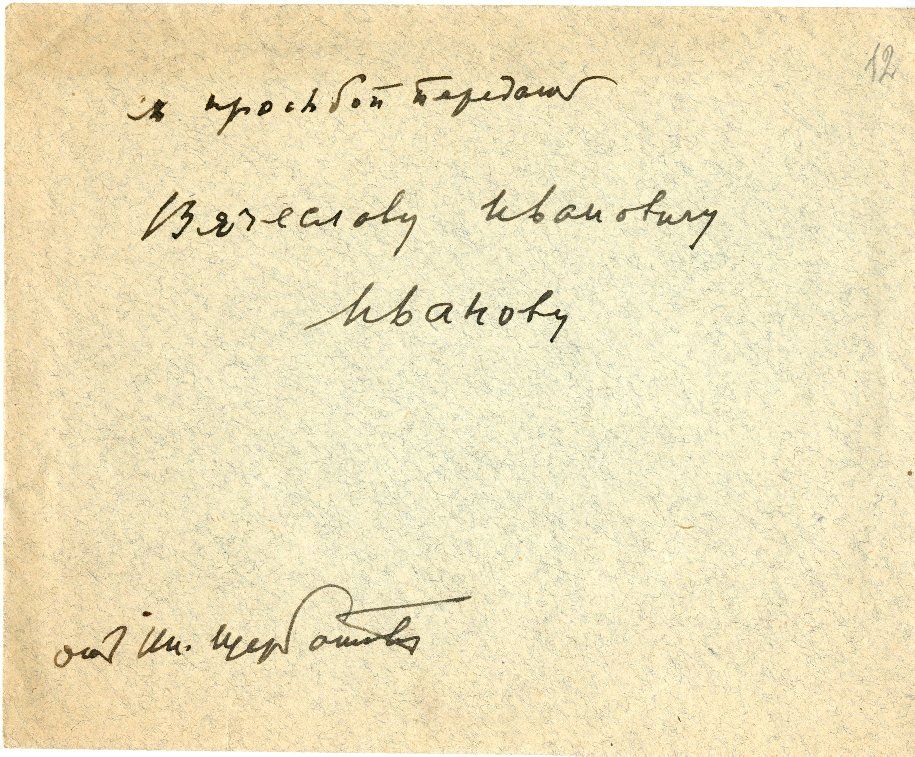 12
съ просьбой передать
Вячеславу Ивановичу
Иванову
от Кн. Щербатова